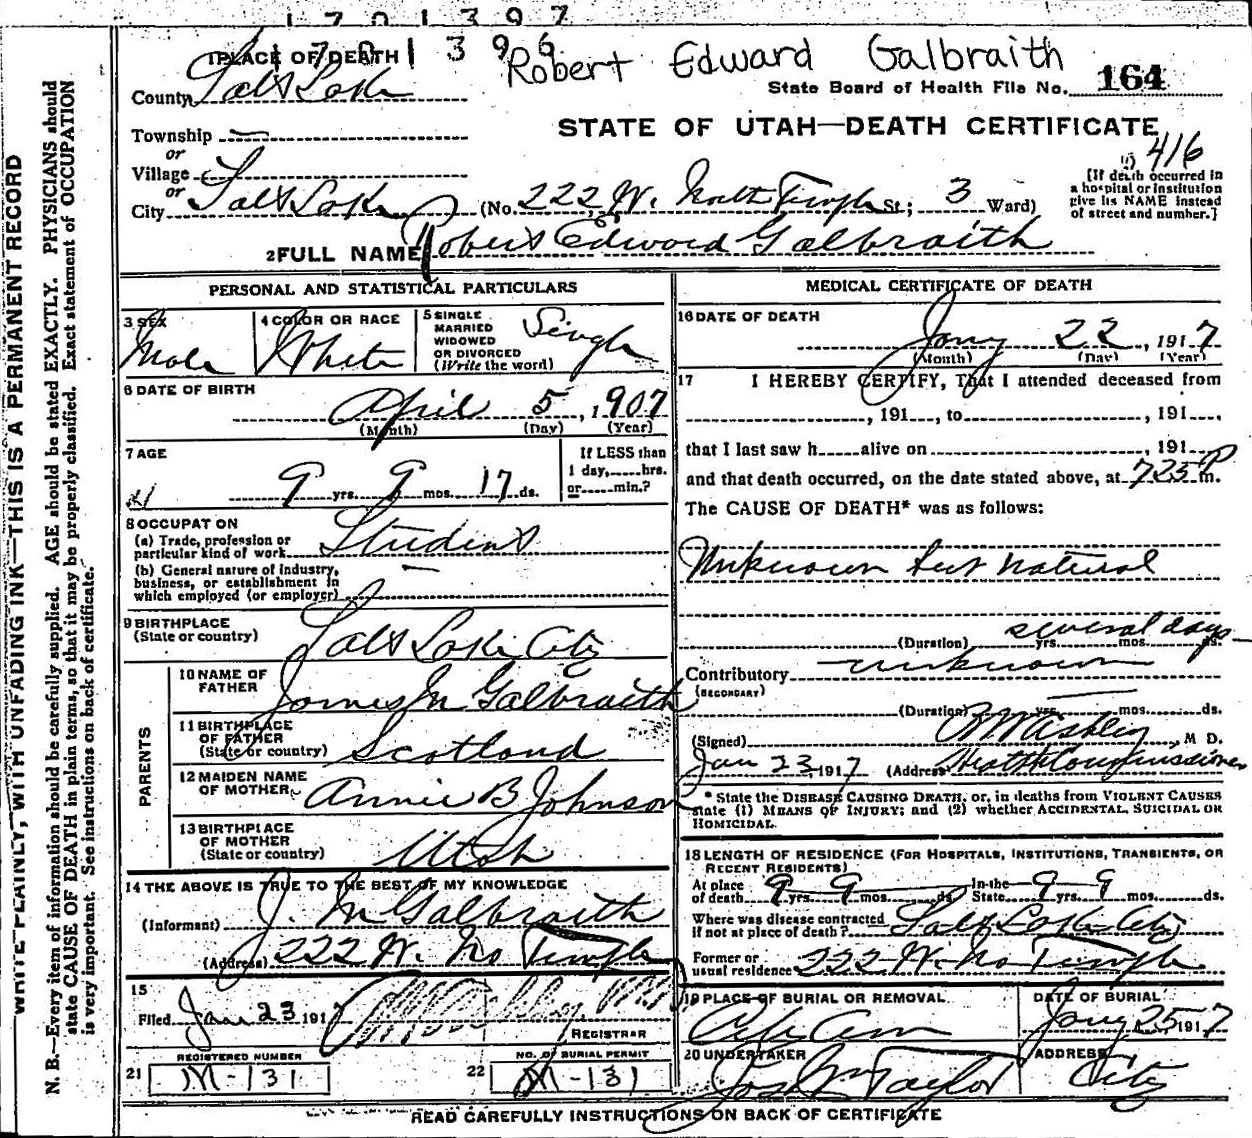 1701397
1701396
Robert Edward Galbraith
1 PLACE OF DEATH
County Salt Lake
State Board of Health File No. 164
Township —
STATE OF UTAH—DEATH CERTIFICATE
or
Village
416
or
City Salt Lake (No. 222 W. North Temple St; 3 Ward)
[If death occurred in
a hospital or institution
give its NAME instead
of street and number.]
2 FULL NAME Robert Edward Galbraith
PERSONAL AND STATISTICAL PARTICULARS
3 SEX
Male
4 COLOR OR RACE
White
5 SINGLE
MARRIED
WIDOWED
OR DIVORCED
(Write the word)
Single
6 DATE OF BIRTH
April 5, 1907
(Month) (Day) (Year)
7 AGE
9 yrs. 9 mos. 17 ds.
If LESS than
1 day,.....hrs.
or.....min.?
21
8 OCCUPATION
(a) Trade, profession or
particular kind of work Student
(b) General nature of industry,
business, or establishment in
which employed (or employer)
9 BIRTHPLACE
(State or country) Salt Lake City
PARENTS
10 NAME OF
FATHER James M Galbraith
11 BIRTHPLACE
OF FATHER
(State or country) Scotland
12 MAIDEN NAME
OF MOTHER Annie B Johnson
13 BIRTHPLACE
OF MOTHER
(State or country) Utah
14 THE ABOVE IS TRUE TO THE BEST OF MY KNOWLEDGE
(Informant) J. M Galbraith
(Address) 222 W. No Temple
15
Filed Jan 23 1917
REGISTRAR
REGISTERED NUMBER
21 M-131
NO. OF BURIAL PERMIT
22 M-131
MEDICAL CERTIFICATE OF DEATH
16 DATE OF DEATH
Jany 22, 1917
(Month) (Day) (Year)
17 I HEREBY CERTIFY, That I attended deceased from
, 191 , to , 191 ,
that I last saw h.....alive on , 191
and that death occurred, on the date stated above, at 725 P m.
The CAUSE OF DEATH* was as follows:
Unknown but natural
several days
(Duration) yrs. mos. ds.
Contributory unknown
(SECONDARY)
(Duration) yrs. mos. ds.
(Signed) , M D.
Jan 23 1917 (Address Health Commissioner
* State the DISEASE CAUSING DEATH, or, in deaths from VIOLENT CAUSES
state (1) MEANS OF INJURY; and (2) whether ACCIDENTAL, SUICIDAL OR
HOMICIDAL.
18 LENGTH OF RESIDENCE (FOR HOSPITALS, INSTITUTIONS, TRANSIENTS, OR
RECENT RESIDENTS)
At place
of death 9 yrs. 9 mos. ds.
In the
State 9 yrs. 9 mos. ds.
Where was disease contracted
if not at place of death? Salt Lake City
Former or
usual residence 222 W. No Temple
19 PLACE OF BURIAL OR REMOVAL
City Cem
DATE OF BURIAL
Jany 25 1917
20 UNDERTAKER
Jos Wm Taylor
ADDRESS
City
READ CAREFULLY INSTRUCTIONS ON BACK OF CERTIFICATE
WRITE PLAINLY, WITH UNFADING INK—THIS IS A PERMANENT RECORD
N. B.—Every item of information should be carefully supplied. AGE should be stated EXACTLY. PHYSICIANS should
state CAUSE OF DEATH in plain terms, so that it may be properly classified. Exact statement of OCCUPATION
is very important. See instructions on back of certificate.